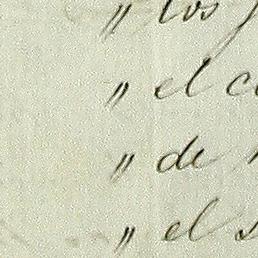 " los
" el c
" de
" el s